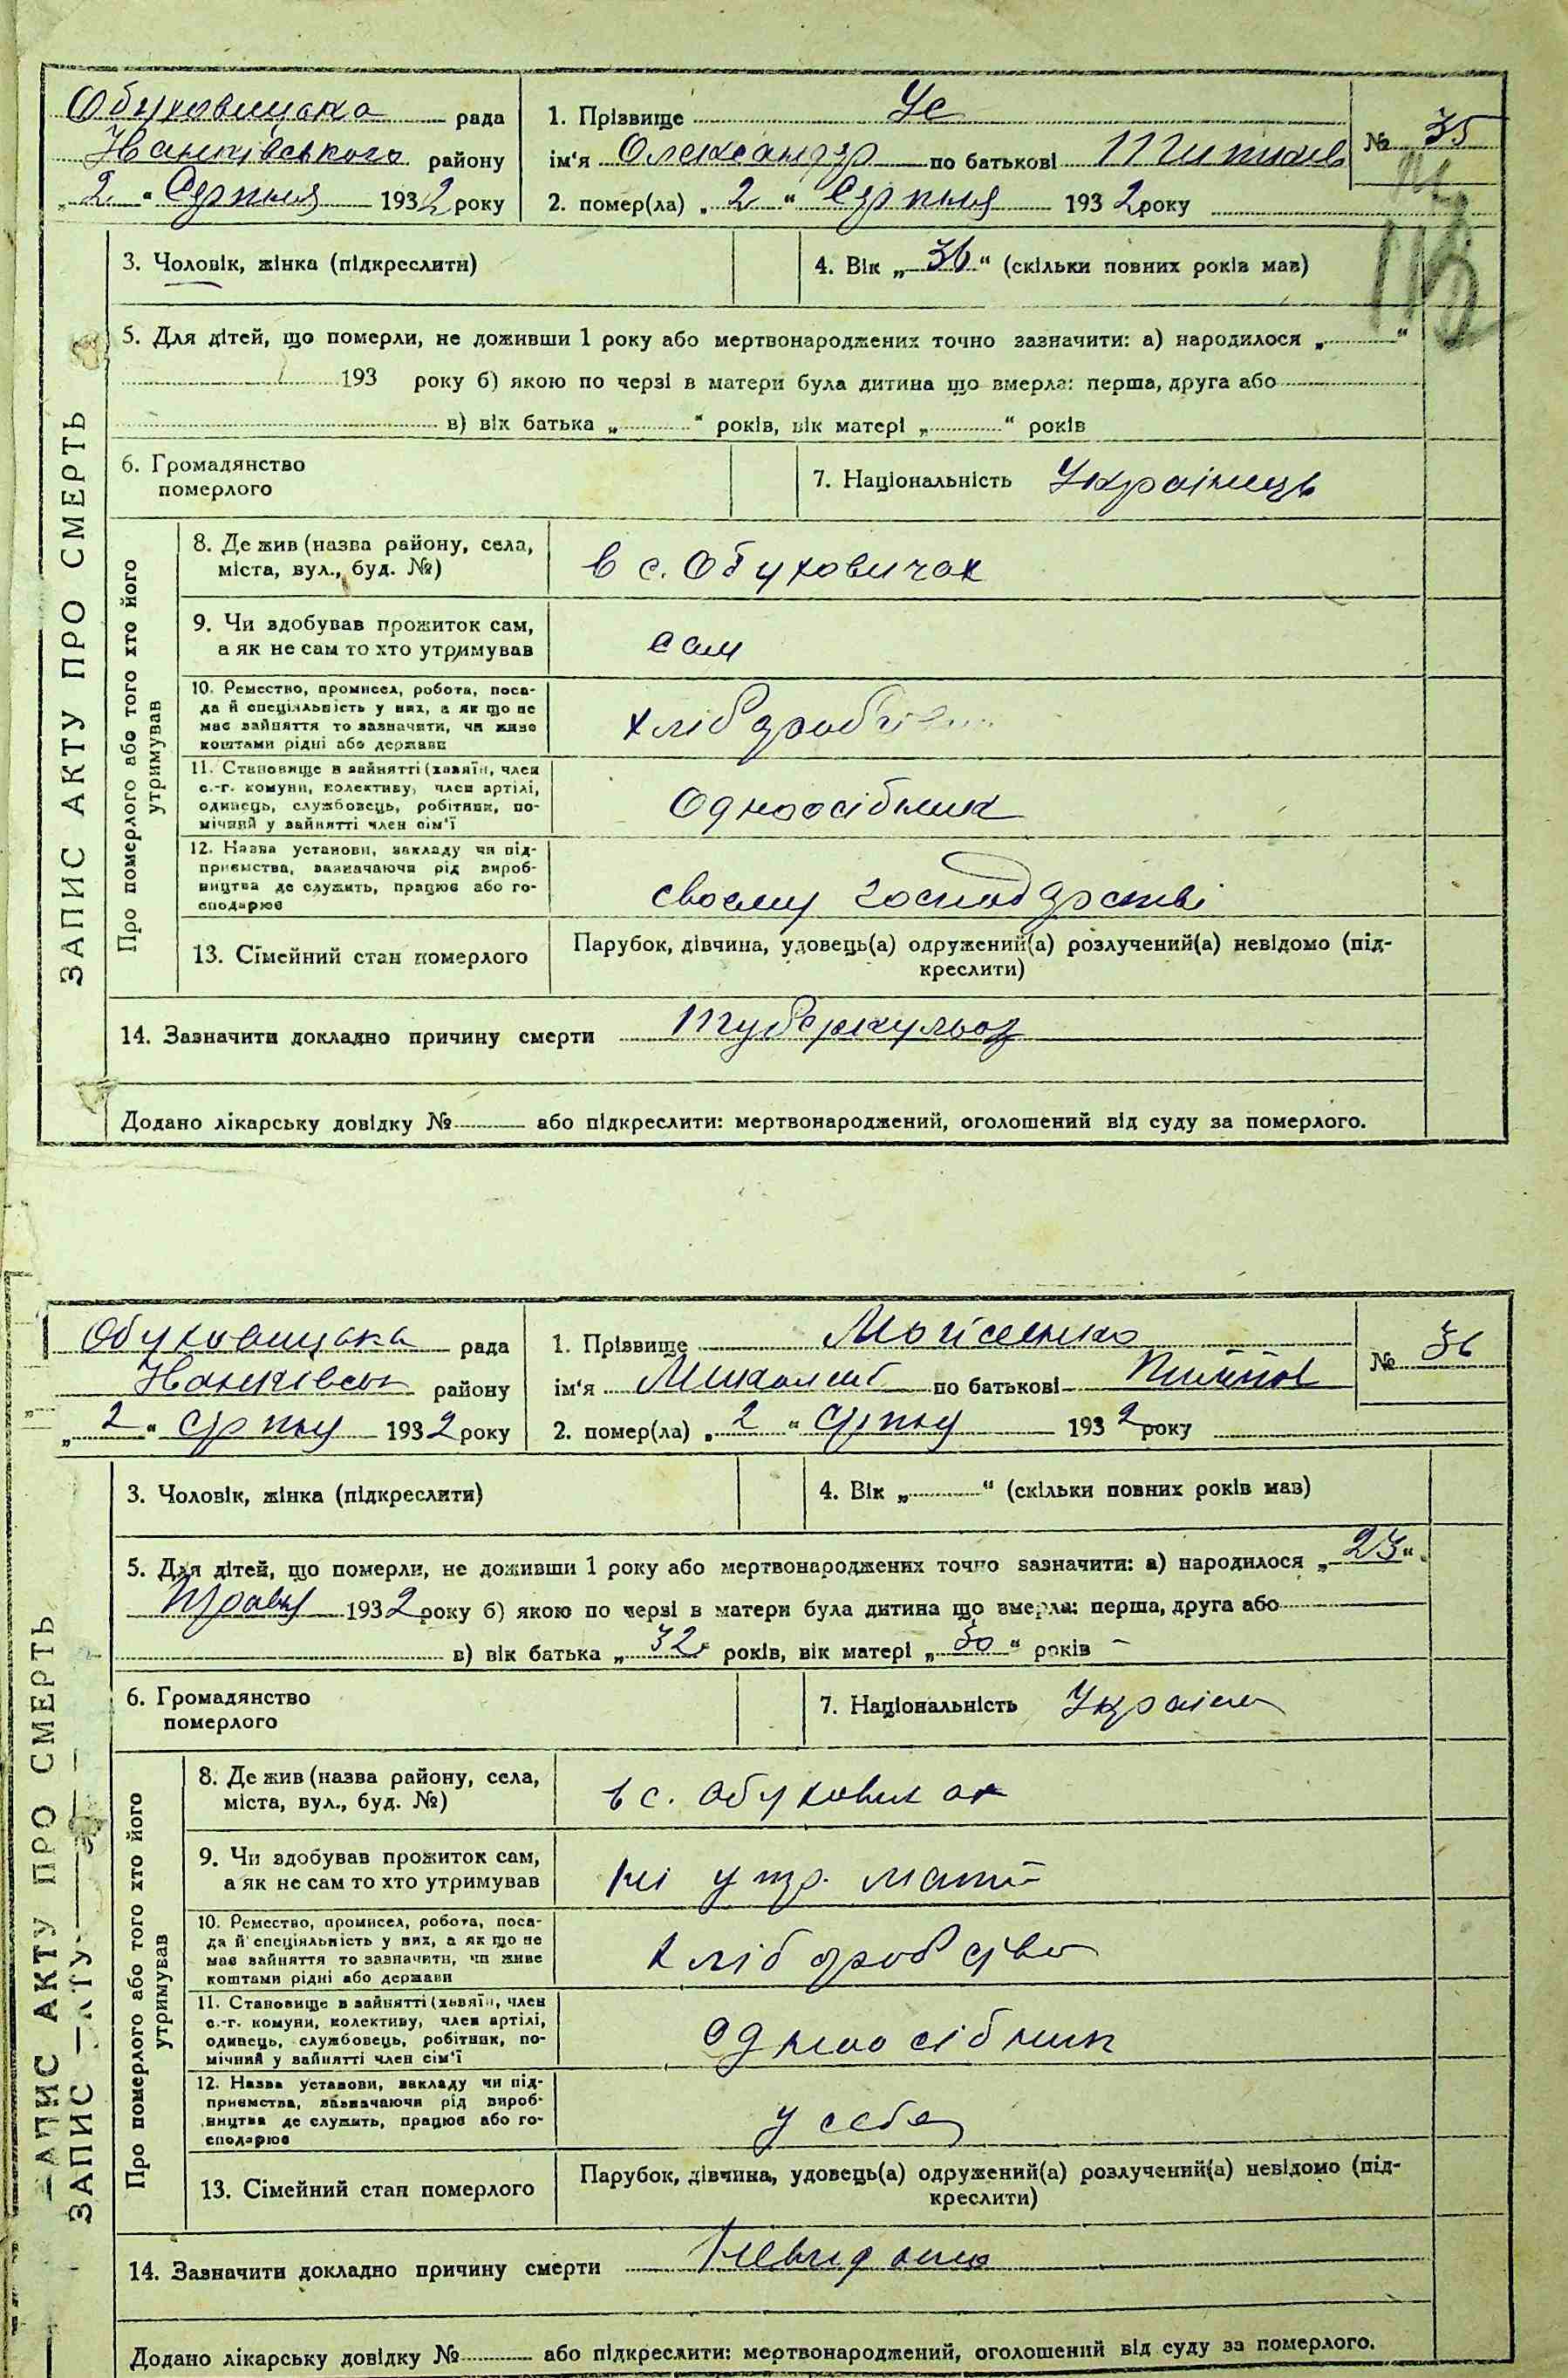 Обуховицька рада
Іванківського району
„2“ Серпня 1932 року
1. Прізвище Ус
ім'я Олександр по батькові
2. помер(ла) „2“ Серпня 1932 року
№ 35
3. Чоловік, жінка (підкреслити)
4. Вік „36“ (скільки повних років мав)
5. Для дітей, що померли, не доживши 1 року або мертвонароджених точно зазначити: а) народилося „ “
193 року б) якою по черзі в матери була дитина що вмерла: перша, друга або
в) вік батька „ “ років, вік матері „ “ років
6. Громадянство
померлого
7. Національність Українець
ЗАПИС АКТУ ПРО СМЕРТЬ
Про померлого або того хто його
утримував
8. Де жив (назва району, села,
міста, вул., буд. №)
в с. Обуховичах
9. Чи здобував прожиток сам,
а як не сам то хто утримував
сам
10. Ремество, промисел, робота, поса-
да й спеціяльність у них, а як що не
має зайняття то зазначити, чи живе
коштами рідні або держави
11. Становище в зайнятті (хазяїн, член
с.-г. комуни, колективу, член артілі,
одинець, службовець, робітник, по-
мічний у зайнятті член сім'ї
Одноосібник
12. Назва установи, закладу чи під-
приємства, зазначаючи рід вироб-
ництва де служить, працює або го-
сподарює
своему господарстві
13. Сімейний стан померлого
Парубок, дівчина, удовець(а) одружений(а) розлучений(а) невідомо (під-
креслити)
14. Зазначити докладно причину смерти туберкульоз
Додано лікарську довідку № або підкреслити: мертвонароджений, оголошений від суду за померлого.
Обуховицька рада
Іванківськ району
„2“ Серпня 1932 року
1. Прізвище Мойсеенко
ім'я по батькові
2. помер(ла) „2“ Серпня 1932 року
№ 36
3. Чоловік, жінка (підкреслити)
4. Вік „ “ (скільки повних років мав)
5. Для дітей, що померли, не доживши 1 року або мертвонароджених точно зазначити: а) народилося „23“
Травня 1932 року б) якою по черзі в матери була дитина що вмерла: перша, друга або
в) вік батька „32“ років, вік матері „30“ років
6. Громадянство
померлого
7. Національність
ЗАПИС АКТУ ПРО СМЕРТЬ
Про померлого або того хто його
утримував
8. Де жив (назва району, села,
міста, вул., буд. №)
в с. Обуховичах
9. Чи здобував прожиток сам,
а як не сам то хто утримував
ні утр. мати
10. Ремество, промисел, робота, поса-
да й спеціяльність у них, а як що не
має зайняття то зазначити, чи живе
коштами рідні або держави
11. Становище в зайнятті (хазяїн, член
с.-г. комуни, колективу, член артілі,
одинець, службовець, робітник, по-
мічний у зайнятті член сім'ї
одноосібник
12. Назва установи, закладу чи під-
приємства, зазначаючи рід вироб-
ництва де служить, працює або го-
сподарює
у себе
13. Сімейний стан померлого
Парубок, дівчина, удовець(а) одружений(а) розлучений(а) невідомо (під-
креслити)
14. Зазначити докладно причину смерти Невидомо
Додано лікарську довідку № або підкреслити: мертвонароджений, оголошений від суду за померлого.